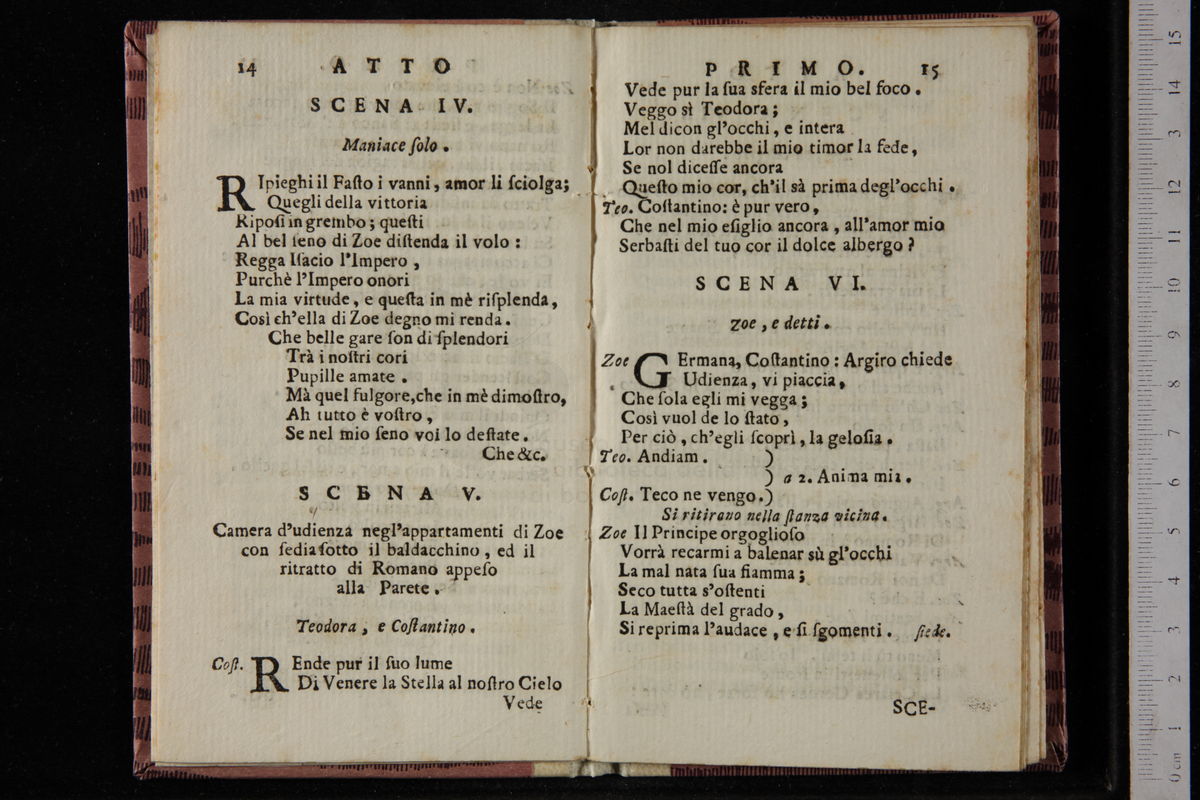 14 ATTO
SCENA IV.
Maniace ſolo.
RIpieghi il Faſto i vanni, amor li ſciolga;
Quegli della vittoria
Ripoſi in grembo; queſti
Al bel ſeno di Zoe diſtenda il volo:
Regga Iſacio l'Impero,
Purchè l'Impero onori
La mia virtude, e queſta in mè riſplenda,
Così ch'ella di Zoe degno mi renda.
Che belle gare ſon di ſplendori
Trà i noſtri cori
Pupille amate.
Mà quel fulgore, che in mè dimoſtro,
Ah tutto è voſtro,
Se nel mio ſeno voi lo deſtate.
Che &c.
SCENA V.
Camera d'udienza negl'appartamenti di Zoe
con ſedia ſotto il baldacchino, ed il
ritratto di Romano appeſo
alla Parete.
Teodora, e Coſtantino.
Coſt. REnde pur il ſuo lume
Di Venere la Stella al noſtro Cielo
Vede
PRIMO. 15
Vede pur la ſua sfera il mio bel foco.
Veggo sì Teodora;
Mel dicon gl'occhi, e intera
Lor non darebbe il mio timor la fede,
Se nol diceſſe ancora
Queſto mio cor, ch'il sà prima degl'occhi.
Teo. Coſtantino: è pur vero,
Che nel mio eſiglio ancora, all'amor mio
Serbaſti del tuo cor il dolce albergo?
SCENA VI.
Zoe, e detti.
Zoe GErmana, Coſtantino: Argiro chiede
Udienza, vi piaccia,
Che ſola egli mi vegga;
Così vuol de lo ſtato,
Per ciò, ch'egli ſcoprì, la geloſia.
Teo. Andiam. )
) a 2. Anima mia.
Coſt. Teco ne vengo. )
Si ritirano nella ſtanza vicina.
Zoe Il Principe orgoglioſo
Vorrà recarmi a balenar sù gl'occhi
La mal nata ſua fiamma;
Seco tutta s'oſtenti
La Maeſtà del grado,
Si reprima l'audace, e ſi ſgomenti. ſiede.
SCE-
0 cm 1 2 3 4 5 6 7 8 9 10 11 12 13 14 15